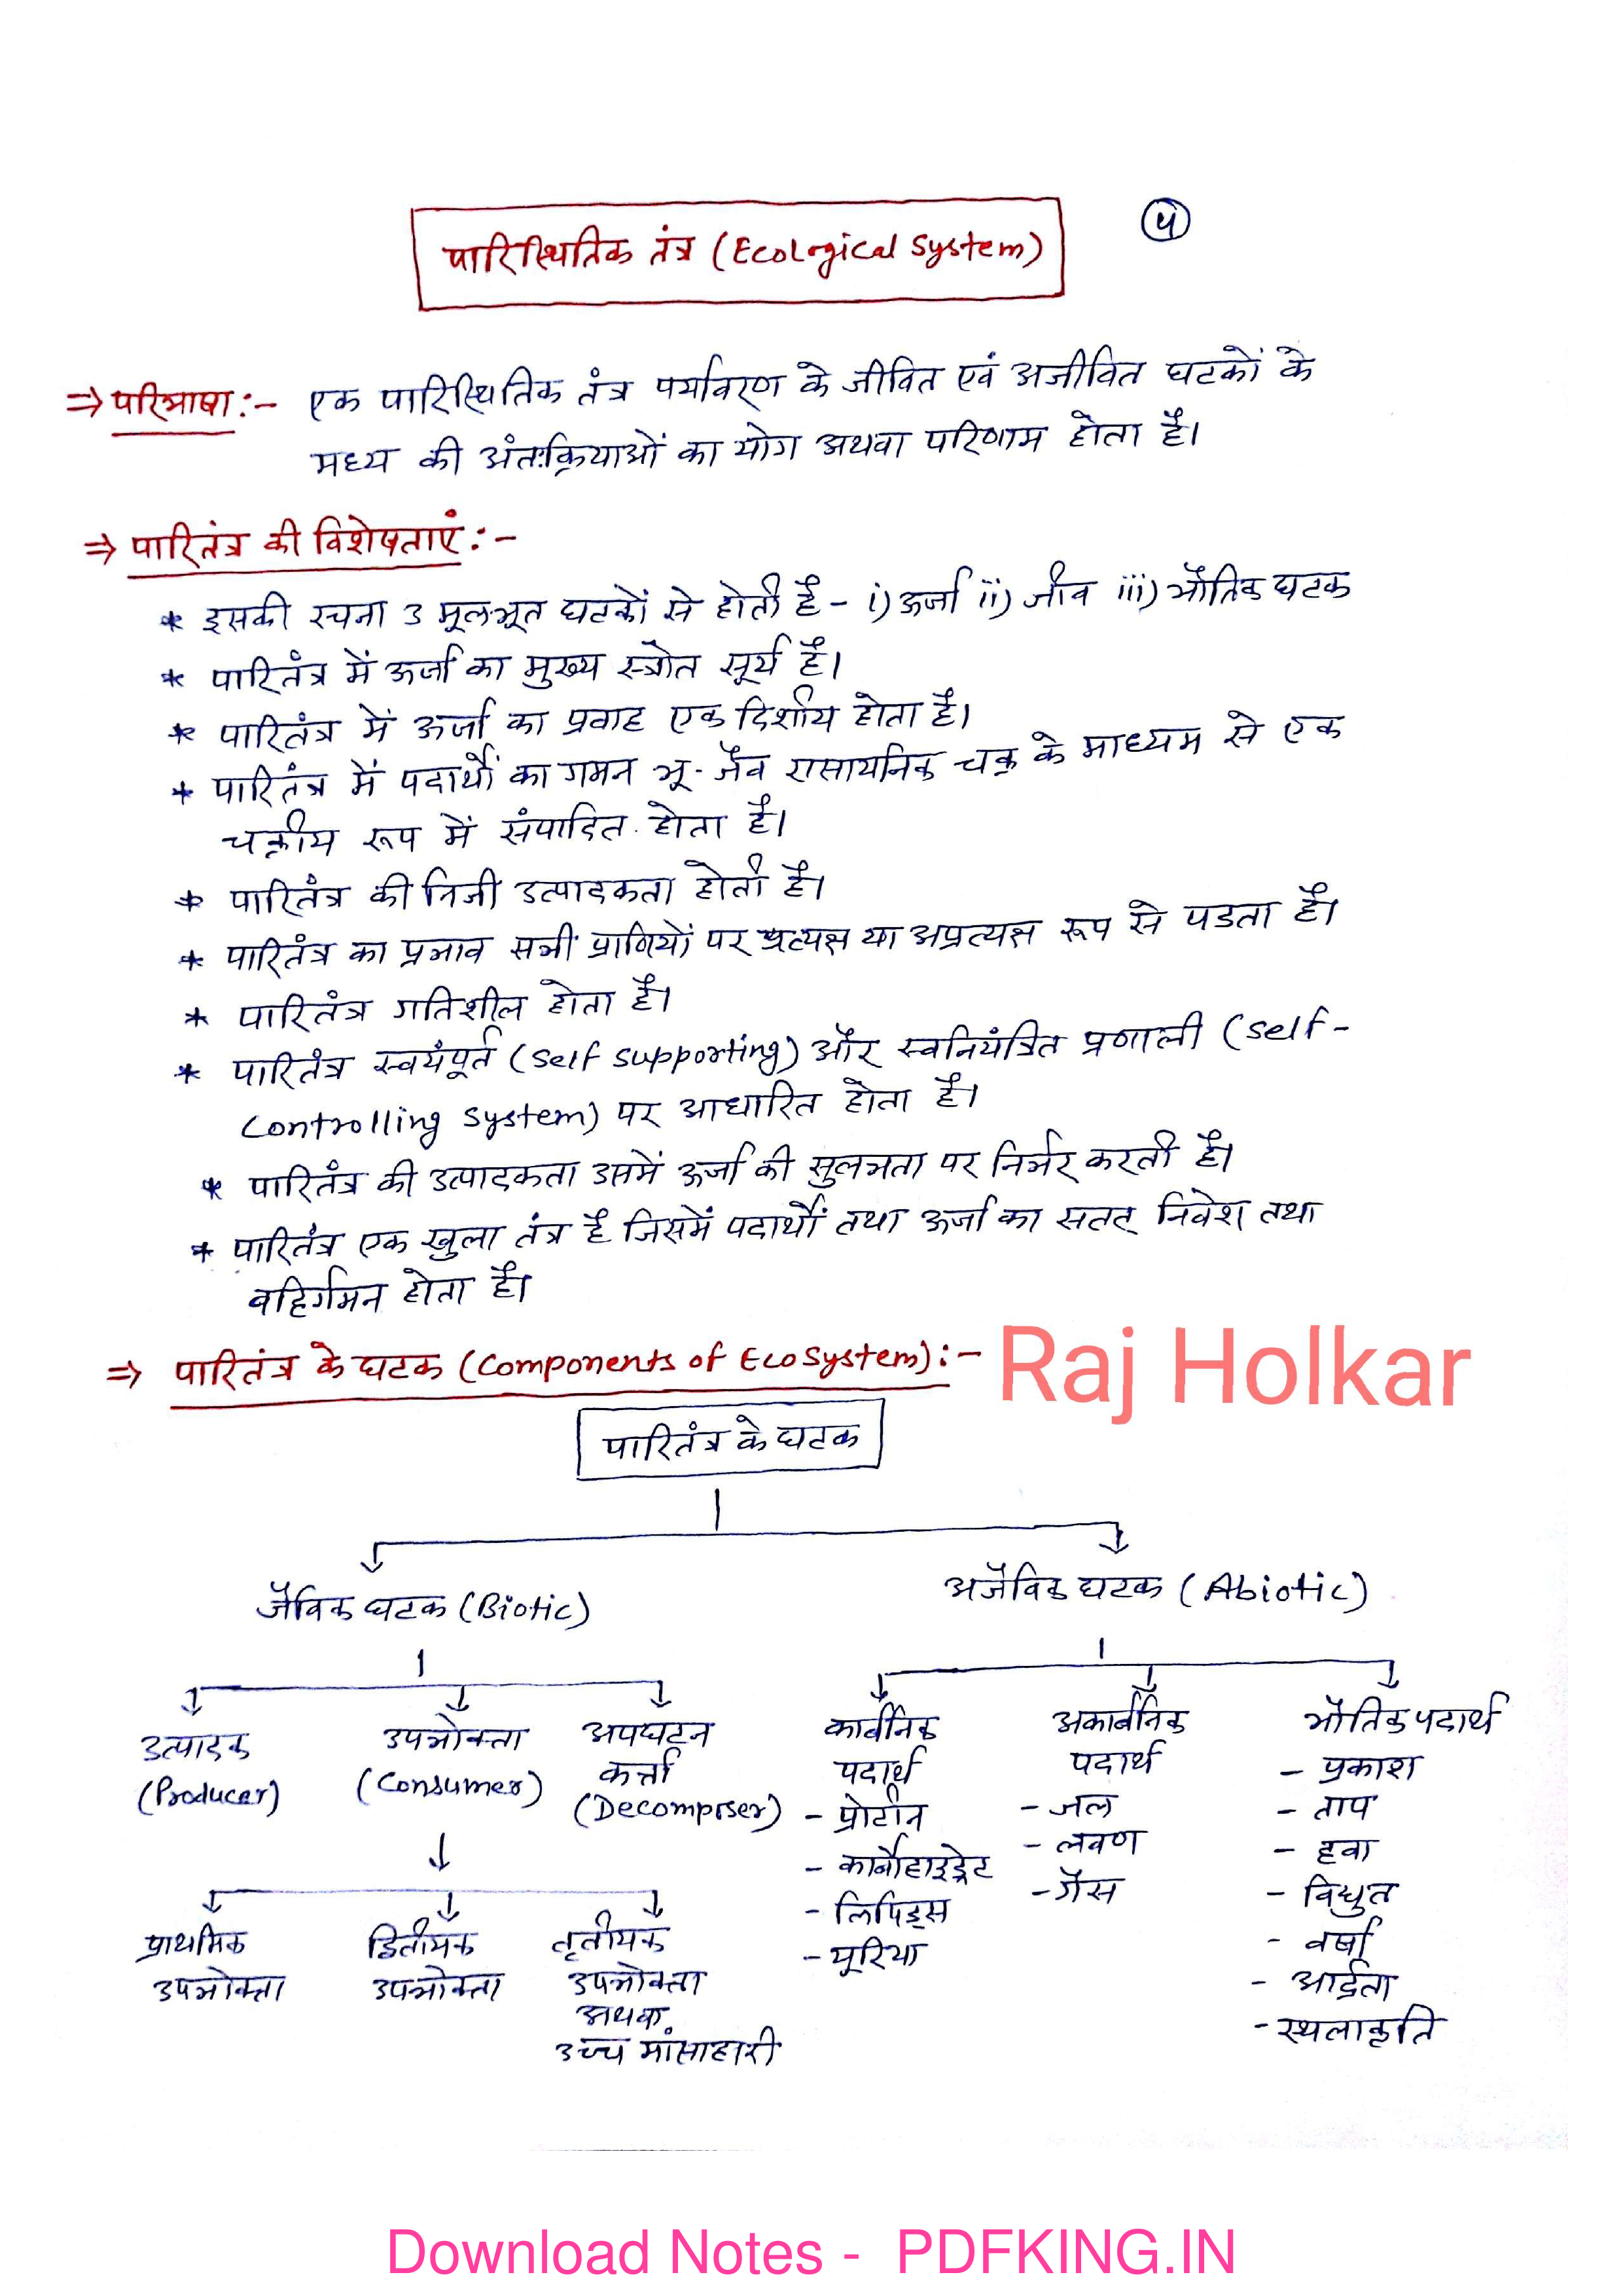 पारिस्थितिक तंत्र (Ecological System)
५
⇒ परिभाषा :- एक पारिस्थितिक तंत्र पर्यावरण के जीवित एवं अजीवित घटकों के
मध्य की अंतःक्रियाओं का योग अथवा परिणाम होता है।
⇒ पारितंत्र की विशेषताएं :-
* इसकी रचना 3 मूलभूत घटकों से होती है - i) ऊर्जा ii) जीव iii) भौतिक घटक
* पारितंत्र में ऊर्जा का मुख्य स्त्रोत सूर्य है।
* पारितंत्र में ऊर्जा का प्रवाह एक दिशीय होता है।
* पारितंत्र में पदार्थों का गमन भू-जैव रासायनिक चक्र के माध्यम से एक
चक्रीय रूप में संपादित होता है।
* पारितंत्र की निजी उत्पादकता होती है।
* पारितंत्र का प्रभाव सभी प्राणियों पर प्रत्यक्ष या अप्रत्यक्ष रूप से पडता है।
* पारितंत्र गतिशील होता है।
* पारितंत्र स्वयंपूर्त (Self Supporting) और स्वनियंत्रित प्रणाली (Self-
Controlling System) पर आधारित होता है।
* पारितंत्र की उत्पादकता उसमें ऊर्जा की सुलभता पर निर्भर करती है।
* पारितंत्र एक खुला तंत्र है जिसमें पदार्थों तथा ऊर्जा का सतत् निवेश तथा
बहिर्गमन होता है।
⇒ पारितंत्र के घटक (Components of EcoSystem) :-
Raj Holkar
पारितंत्र के घटक
जैविक घटक (Biotic)
अजैविक घटक (Abiotic)
उत्पादक
(Producer)
उपभोक्ता
(Consumer)
अपघटन
कर्त्ता
(Decomposer)
प्राथमिक
उपभोक्ता
द्वितीयक
उपभोक्ता
तृतीयक
उपभोक्ता
अथवा
उच्च मांसाहारी
कार्बनिक
पदार्थ
- प्रोटीन
- कार्बोहाइड्रेट
- लिपिड्स
- यूरिया
अकार्बनिक
पदार्थ
- जल
- लवण
- गैस
भौतिक पदार्थ
- प्रकाश
- ताप
- हवा
- विधुत
- वर्षा
- आर्द्रता
- स्थलाकृति
Download Notes - PDFKING.IN